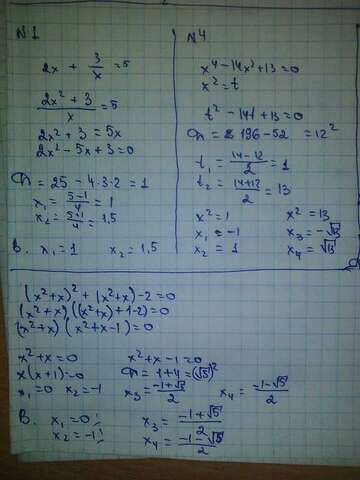 N1
2x + 3/x = 5
(2x² + 3)/x = 5
2x² + 3 = 5x
2x² - 5x + 3 = 0
D = 25 - 4·3·2 = 1
x₁ = (5-1)/4 = 1
x₂ = (5+1)/4 = 1,5
В. x₁ = 1 x₂ = 1,5
N4
x⁴ - 14x² + 13 = 0
x² = t
t² - 14t + 13 = 0
D = 196 - 52 = 12²
t₁ = (14-12)/2 = 1
t₂ = (14+12)/2 = 13
x² = 1 x² = 13
x₁ = -1 x₃ = -√13
x₂ = 1 x₄ = √13
(x²+x)² + (x²+x) - 2 = 0
(x²+x) ((x²+x) + 1 - 2) = 0
(x²+x) (x²+x-1) = 0
x²+x = 0 x²+x-1 = 0
x(x+1) = 0 D = 1+4 = (√5)²
x₁ = 0 x₂ = -1 x₃ = (-1+√5)/2 x₄ = (-1-√5)/2
В. x₁ = 0; x₃ = (-1+√5)/2
x₂ = -1; x₄ = (-1-√5)/2